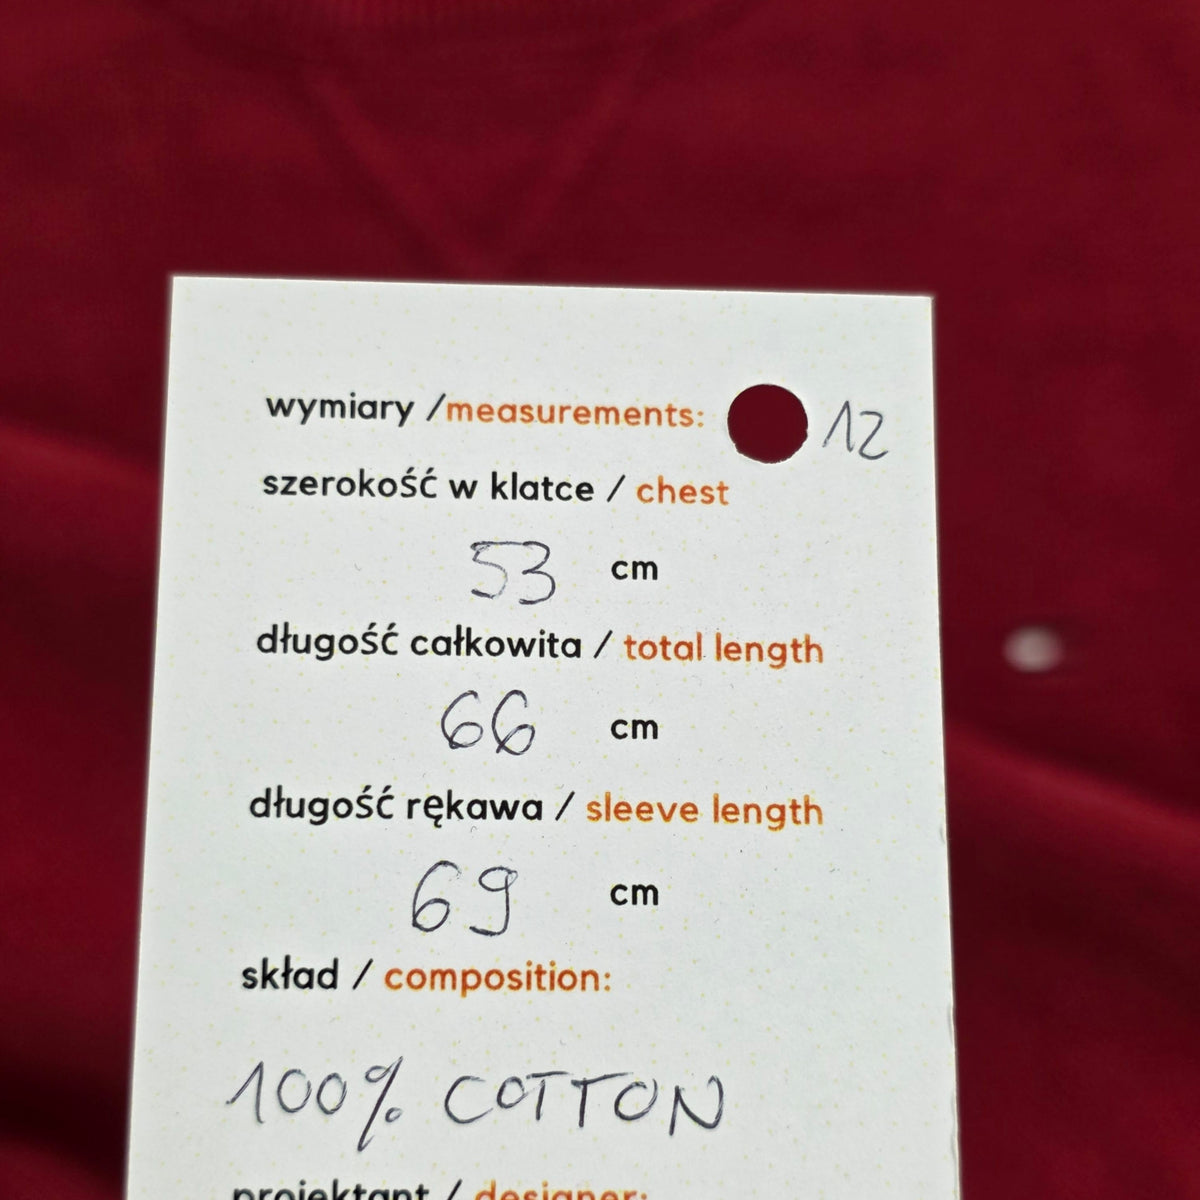 wymiary /measurements: 12
szerokość w klatce / chest
53 cm
długość całkowita / total length
66 cm
długość rękawa / sleeve length
69 cm
skład / composition:
100% COTTON
projektant / designer: